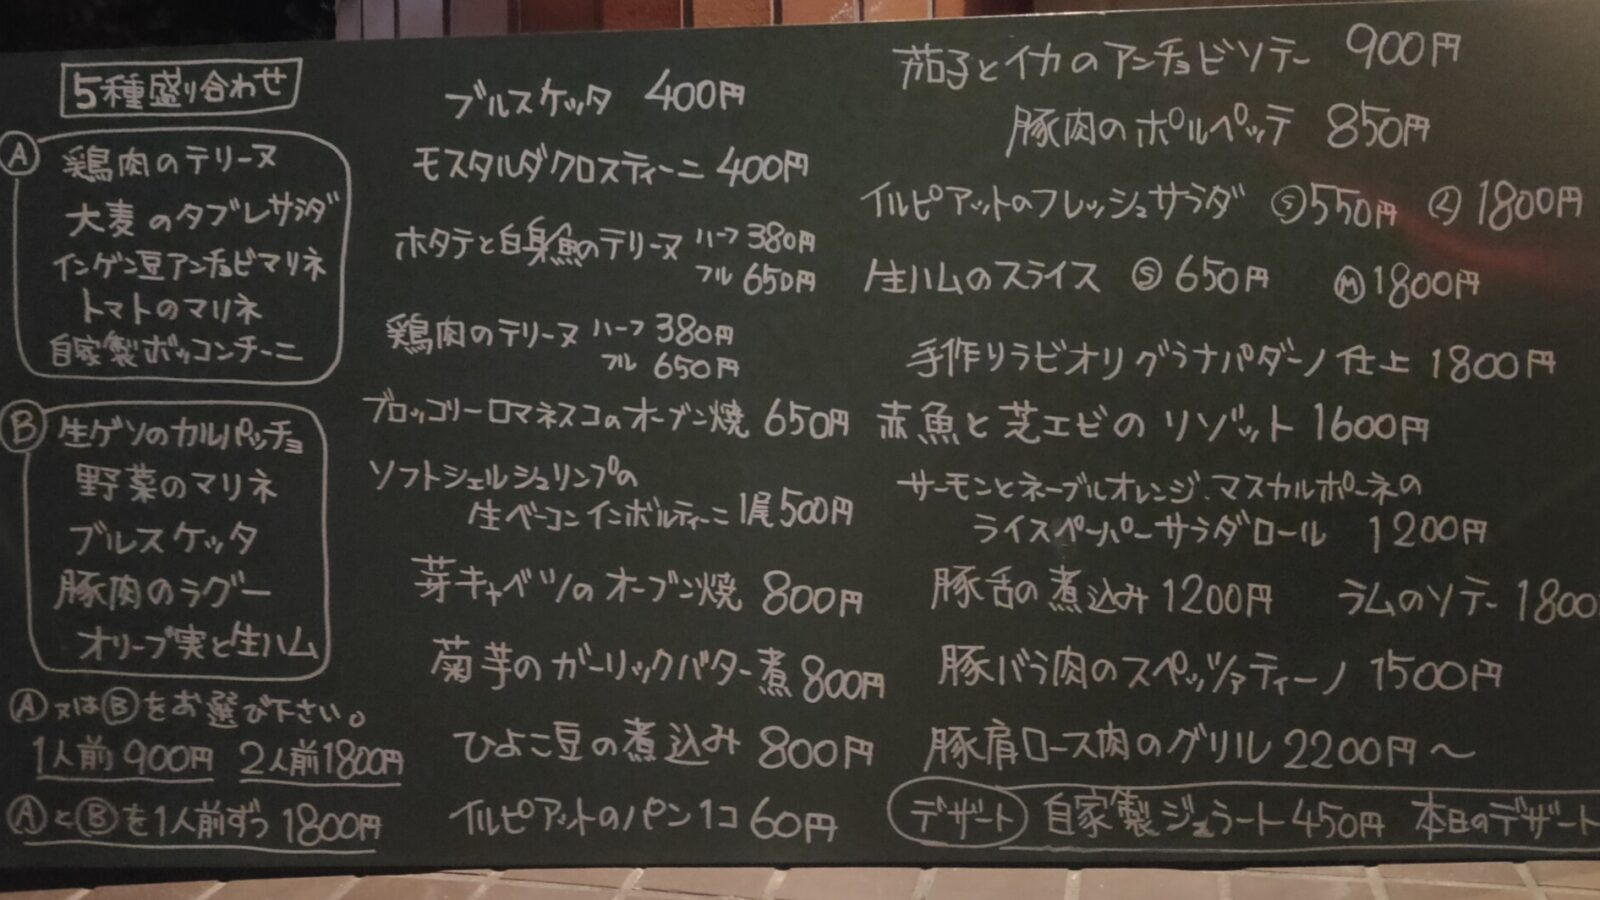 5種盛り合わせ
A
鶏肉のテリーヌ
大麦のタブレサラダ
インゲン豆アンチョビマリネ
トマトのマリネ
自家製ボッコンチーニ
B
生ゲソのカルパッチョ
野菜のマリネ
ブルスケッタ
豚肉のラグー
オリーブ実と生ハム
A又はBをお選び下さい。
1人前900円 2人前1800円
AとBを1人前ずつ1800円
ブルスケッタ 400円
モスタルダクロスティーニ 400円
ホタテと白身魚のテリーヌ ハーフ 380円
フル 650円
鶏肉のテリーヌ ハーフ 380円
フル 650円
ブロッコリーロマネスコのオーブン焼 650円
ソフトシェルシュリンプの
生ベーコンインボルティーニ 1尾500円
芽キャベツのオーブン焼 800円
菊芋のガーリックバター煮 800円
ひよこ豆の煮込み 800円
イルピアットのパン1コ 60円
茄子とイカのアンチョビソテー 900円
豚肉のポルペッテ 850円
イルピアットのフレッシュサラダ S550円 L1800円
生ハムのスライス S650円 M1800円
手作りラビオリグラナパダーノ仕上 1800円
赤魚と芝エビのリゾット 1600円
サーモンとネーブルオレンジ、マスカルポーネの
ライスペーパーサラダロール 1200円
豚舌の煮込み 1200円 ラムのソテー 1800
豚バラ肉のスペッツァティーノ 1500円
豚肩ロース肉のグリル 2200円〜
デザート 自家製ジェラート 450円 本日のデザート